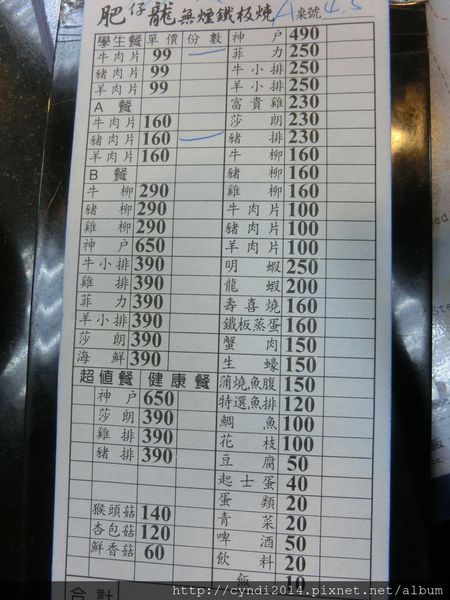 肥仔龍無煙鐵板燒 桌號 4.5
學生餐 單價 份數
牛肉片 99
豬肉片 99
羊肉片 99
A 餐
牛肉片 160
豬肉片 160
羊肉片 160
B 餐
牛柳 290
豬柳 290
雞柳 290
神户 650
牛小排 390
雞排 390
菲力 390
羊小排 390
莎朗 390
海鮮 390
超值餐 健康餐
神户 650
莎朗 390
雞排 390
豬排 390
猴頭菇 140
杏包菇 120
鮮香菇 60
合計
神户 490
菲力 250
牛小排 250
羊小排 250
富貴雞 230
莎朗 230
豬排 230
牛柳 160
豬柳 160
雞柳 160
牛肉片 100
豬肉片 100
羊肉片 100
明蝦 250
龍蝦 200
壽喜燒 160
鐵板蒸蛋 160
蟹肉 150
生蠔 150
蒲燒魚腹 150
特選魚排 120
鯛魚 100
花枝 100
豆腐 50
起士蛋 40
蛋類 20
青菜 20
啤酒 50
飲料 20
飯 10
http://cyndi2014.pixnet.net/album